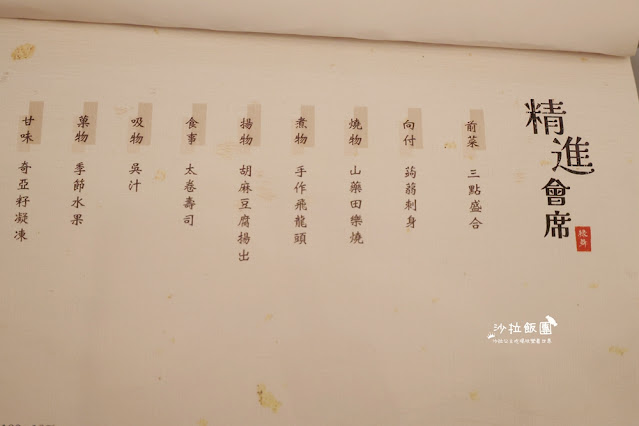 精進會席
前菜 三點盛合
向付 蒟蒻刺身
燒物 山藥田樂燒
煮物 手作飛龍頭
揚物 胡麻豆腐揚出
食事 太卷壽司
吸物 吳汁
菓物 季節水果
甘味 奇亞籽凝凍
沙拉飯團